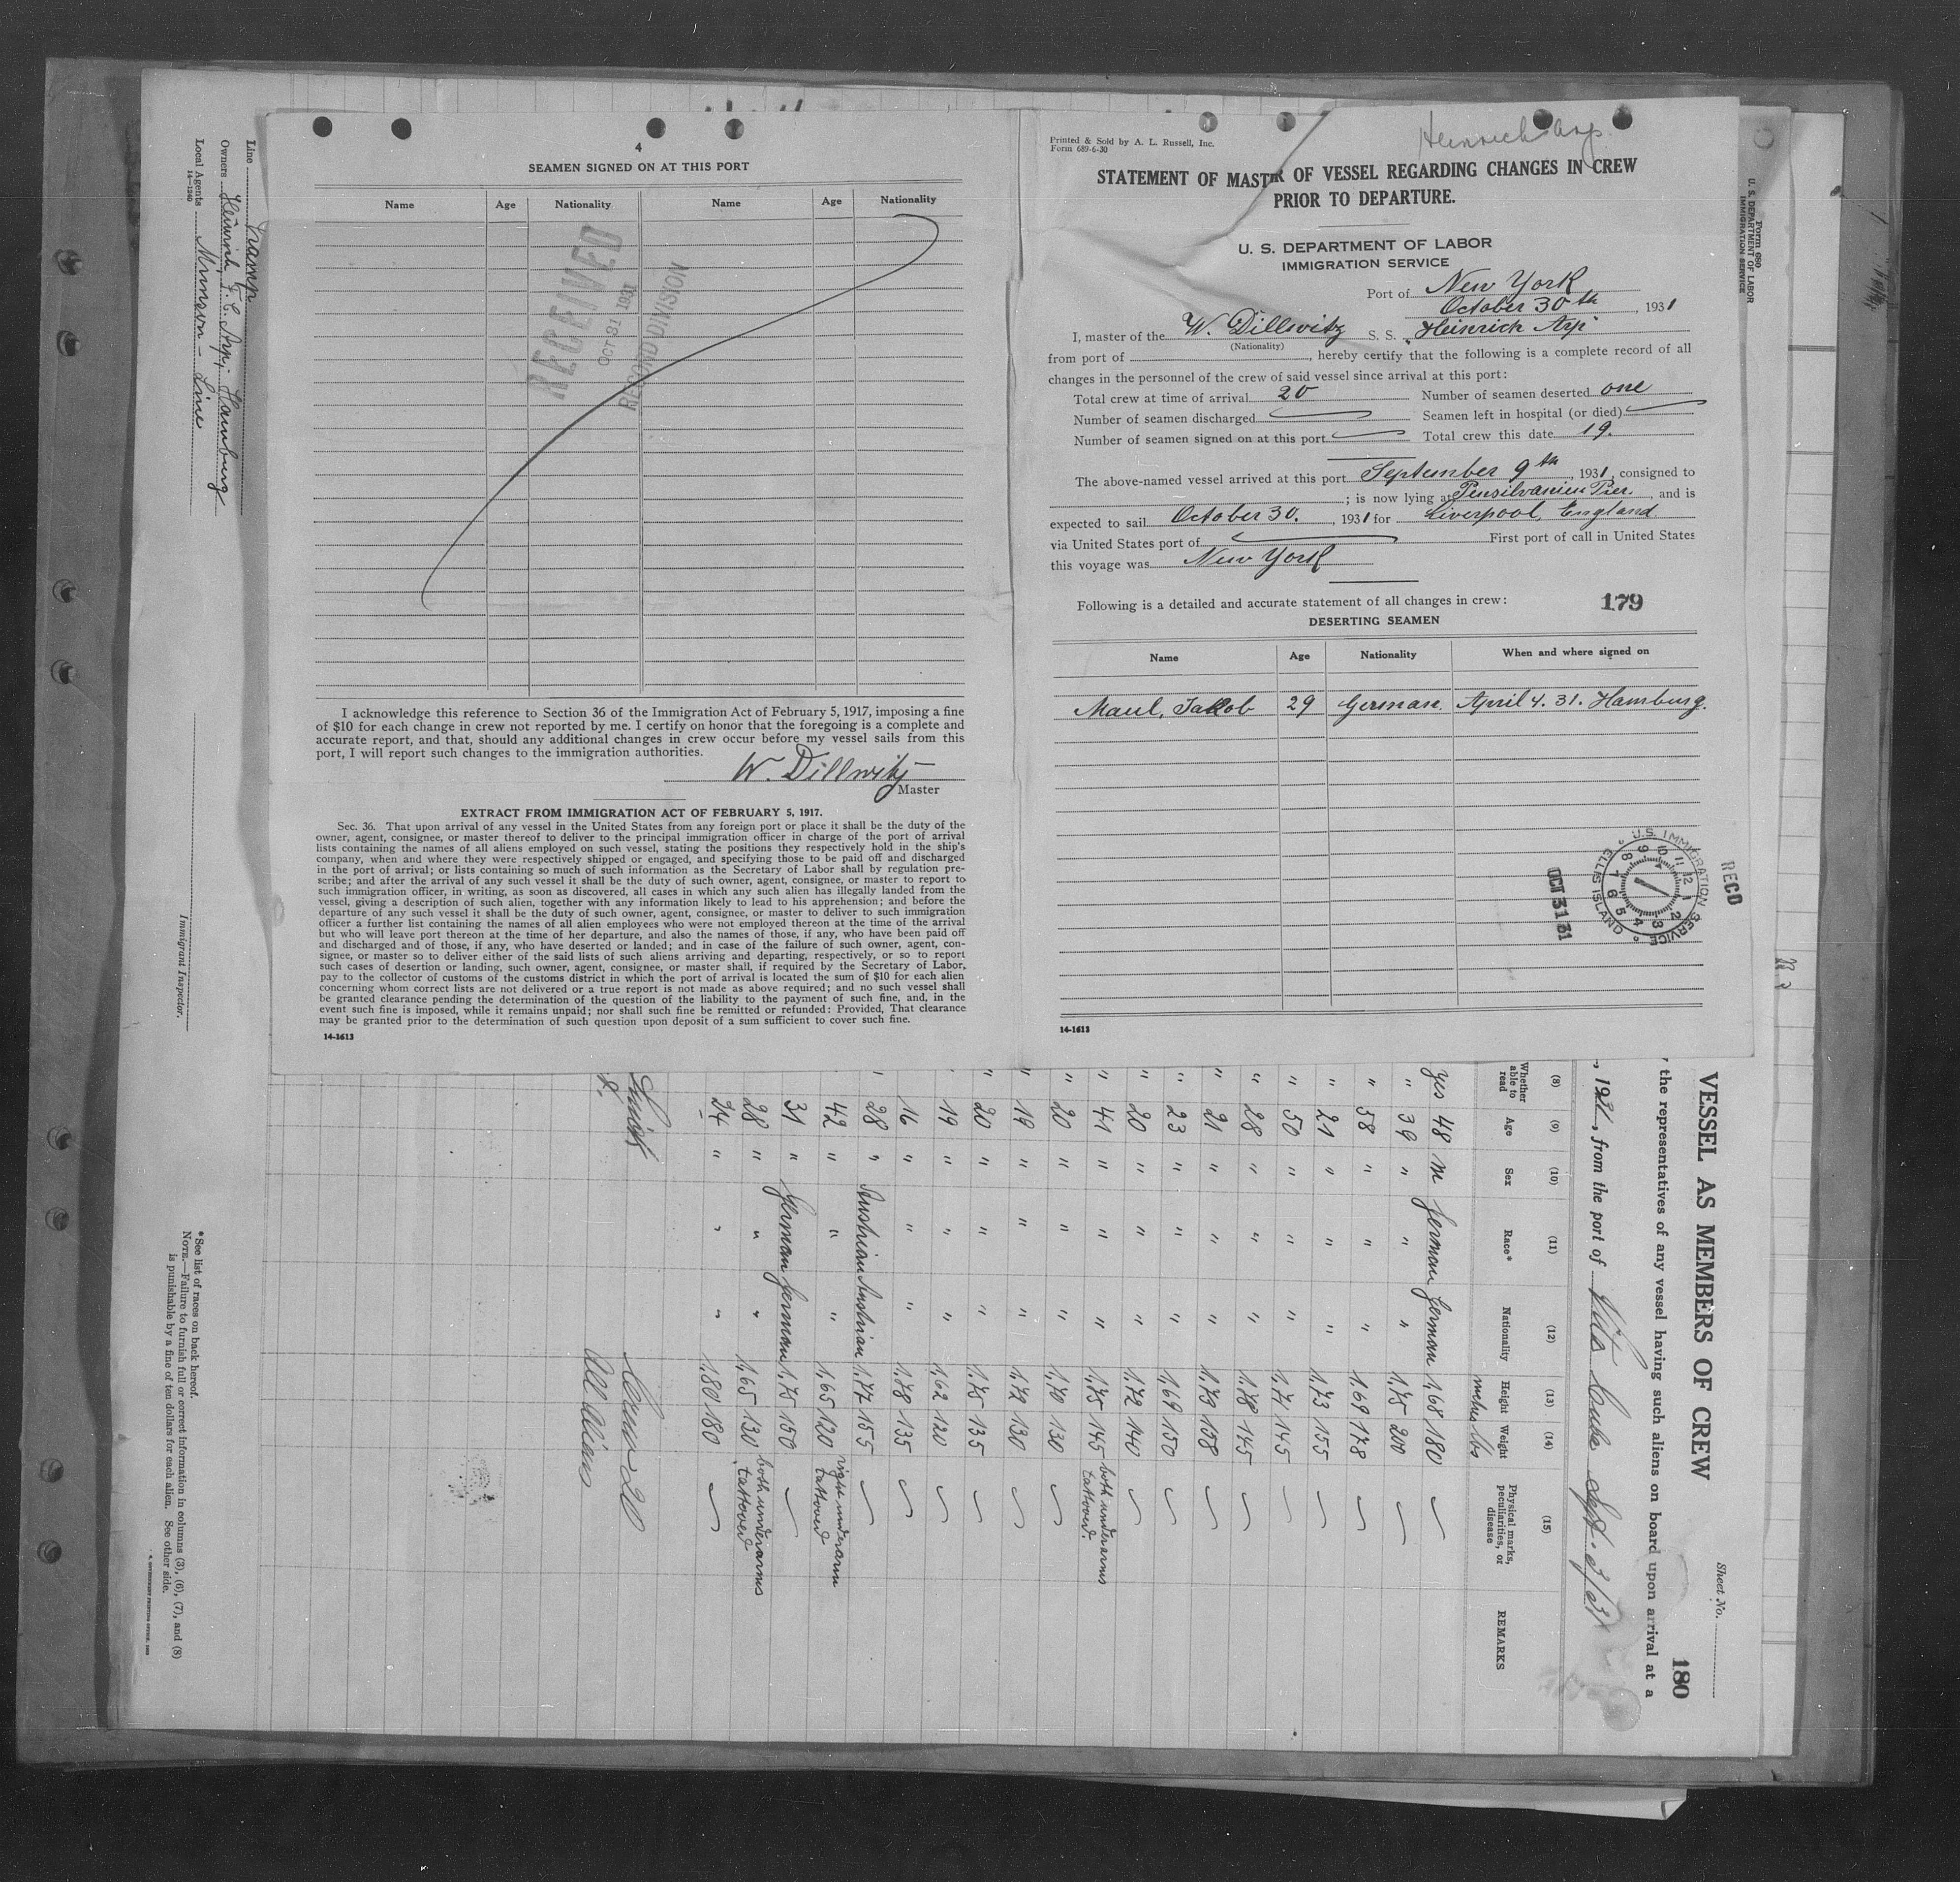 4
SEAMEN SIGNED ON AT THIS PORT
Name Age Nationality Name Age Nationality
RECEIVED
OCT 31 1931
RECORD DIVISION
I acknowledge this reference to Section 36 of the Immigration Act of February 5, 1917, imposing a fine
of $10 for each change in crew not reported by me. I certify on honor that the foregoing is a complete and
accurate report, and that, should any additional changes in crew occur before my vessel sails from this
port, I will report such changes to the immigration authorities.
W. Dillwitz
Master
EXTRACT FROM IMMIGRATION ACT OF FEBRUARY 5, 1917.
Sec. 36. That upon arrival of any vessel in the United States from any foreign port or place it shall be the duty of the
owner, agent, consignee, or master thereof to deliver to the principal immigration officer in charge of the port of arrival
lists containing the names of all aliens employed on such vessel, stating the positions they respectively hold in the ship's
company, when and where they were respectively shipped or engaged, and specifying those to be paid off and discharged
in the port of arrival; or lists containing so much of such information as the Secretary of Labor shall by regulation pre-
scribe; and after the arrival of any such vessel it shall be the duty of such owner, agent, consignee, or master to report to
such immigration officer, in writing, as soon as discovered, all cases in which any such alien has illegally landed from the
vessel, giving a description of such alien, together with any information likely to lead to his apprehension; and before the
departure of any such vessel it shall be the duty of such owner, agent, consignee, or master to deliver to such immigration
officer a further list containing the names of all alien employees who were not employed thereon at the time of the arrival
but who will leave port thereon at the time of her departure, and also the names of those, if any, who have been paid off
and discharged and of those, if any, who have deserted or landed; and in case of the failure of such owner, agent, con-
signee, or master so to deliver either of the said lists of such aliens arriving and departing, respectively, or so to report
such cases of desertion or landing, such owner, agent, consignee, or master shall, if required by the Secretary of Labor,
pay to the collector of customs of the customs district in which the port of arrival is located the sum of $10 for each alien
concerning whom correct lists are not delivered or a true report is not made as above required; and no such vessel shall
be granted clearance pending the determination of the question of the liability to the payment of such fine, and, in the
event such fine is imposed, while it remains unpaid; nor shall such fine be remitted or refunded: Provided, That clearance
may be granted prior to the determination of such question upon deposit of a sum sufficient to cover such fine.
14-1613
Heinrich Arp.
Printed & Sold by A. L. Russell, Inc.
Form 689-6-30
STATEMENT OF MASTER OF VESSEL REGARDING CHANGES IN CREW
PRIOR TO DEPARTURE.
U. S. DEPARTMENT OF LABOR
IMMIGRATION SERVICE
Port of New York
October 30th, 1931
I, master of the W. Dillwitz S. S. "Heinrich Arp"
(Nationality)
from port of , hereby certify that the following is a complete record of all
changes in the personnel of the crew of said vessel since arrival at this port:
Total crew at time of arrival 20 Number of seamen deserted one
Number of seamen discharged Seamen left in hospital (or died)
Number of seamen signed on at this port Total crew this date 19.
The above-named vessel arrived at this port September 9th, 1931, consigned to
; is now lying at Pensilvanien Pier. , and is
expected to sail October 30. , 1931 for Liverpool, England
via United States port of First port of call in United States
this voyage was New York
Following is a detailed and accurate statement of all changes in crew: 179
DESERTING SEAMEN
Name Age Nationality When and where signed on
Maul, Jakob 29 German. April 4. 31. Hamburg.
U.S. IMMIGRATION SERVICE
ELLIS ISLAND
12 1 2 3 4 5 6 7 8 9 10 11
RECD
OCT 31 31
14-1613
Form 680
U. S. DEPARTMENT OF LABOR
IMMIGRATION SERVICE
Line Tramp
Owners Heinrich F. C. Arp, Hamburg
Local Agents Munson-Line
14-1240
Immigrant Inspector.
VESSEL AS MEMBERS OF CREW
Sheet No.
180
the representatives of any vessel having such aliens on board upon arrival at a
, 1931, from the port of Sept. 3/31
(8) (9) (10) (11) (12) (13) (14) (15)
Whether able to read Age Sex Race* Nationality Height Weight Physical marks, peculiarities, or disease REMARKS
metres lbs
yes 48 m German German 1,68 180
" 39 " " " 1,75 200
" 58 " " " 1,69 178
" 21 " " " 1,73 155
" 50 " " " 1,71 145
" 28 " " " 1,78 145
" 21 " " " 1,79 158
" 23 " " " 1,69 150
" 20 " " " 1,72 140
" 41 " " " 1,75 145 both underarms tattoved.
" 20 " " " 1,70 130
" 19 " " " 1,72 130
" 20 " " " 1,75 135
" 19 " " " 1,62 120
" 16 " " " 1,78 135
" 28 " Austrian Austrian 1,77 155
42 " " " 1,65 120 right underarm tattoved
31 " German German 1,75 150
28 " " " 1,65 130 both underarms tattoved
24 " " " 1,80 180
Crew 20
All Aliens
*See list of races on back hereof.
NOTE.—Failure to furnish full or correct information in columns (3), (6), (7), and (8)
is punishable by a fine of ten dollars for each alien. See other side.